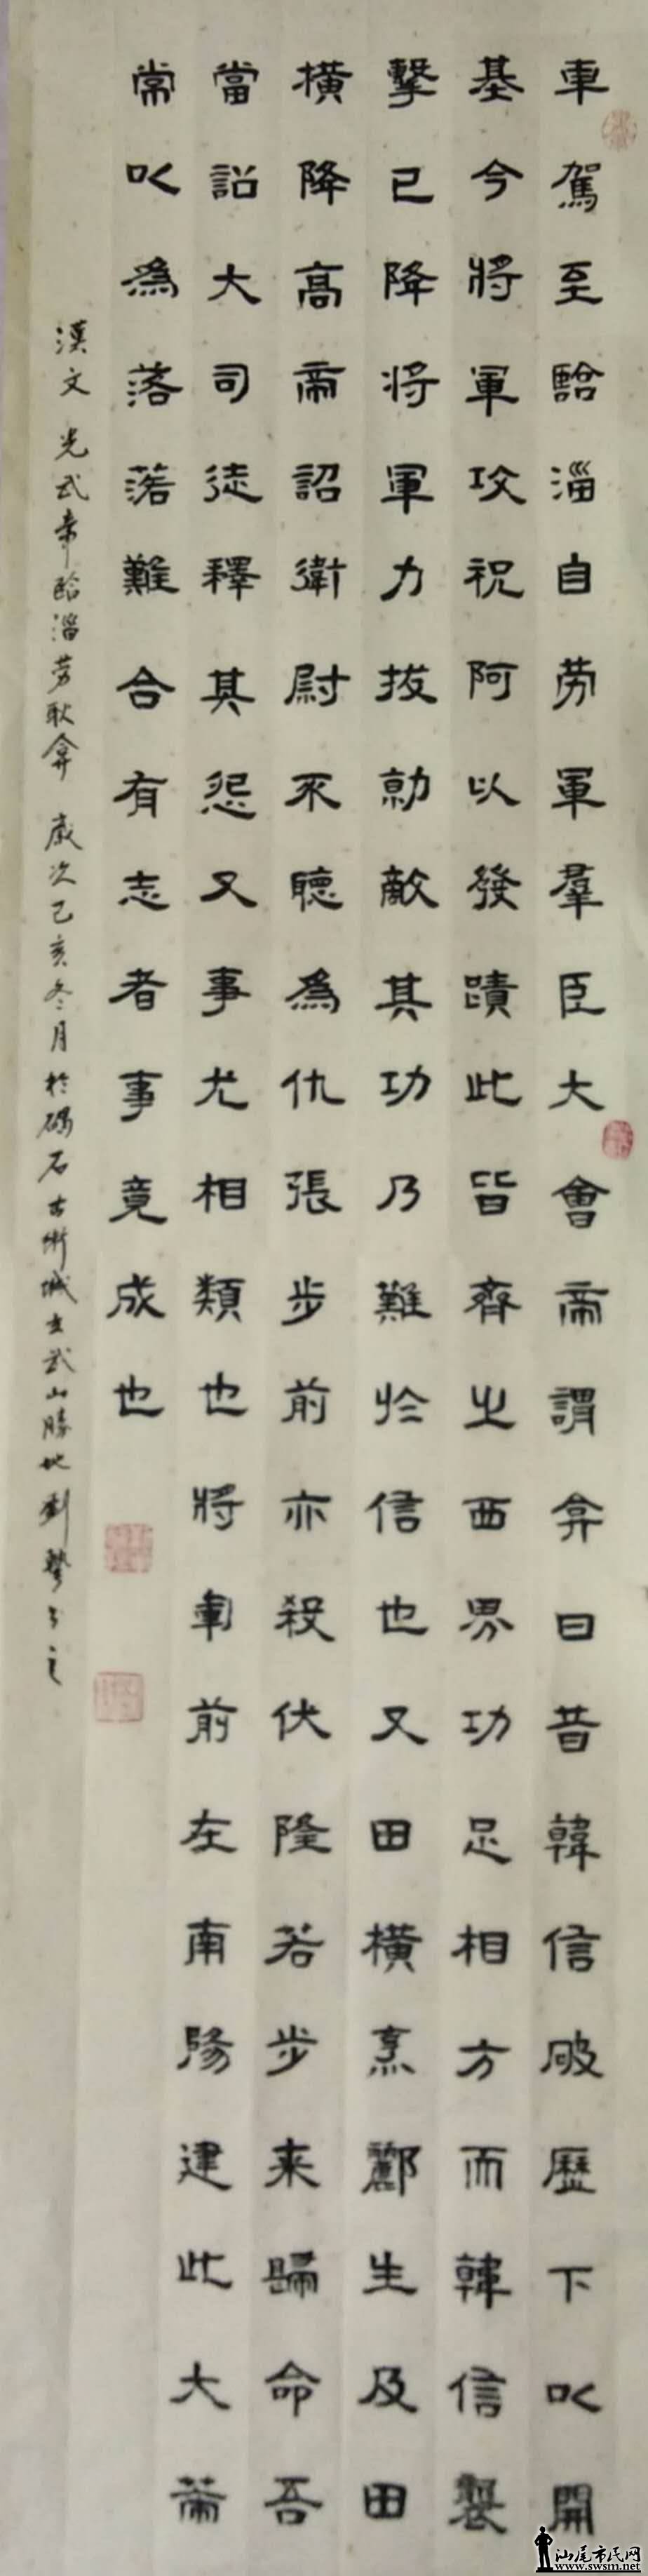 車駕至臨淄自劳軍羣臣大會帝謂弇曰昔韓信破歷下以開
基今將軍攻祝阿以發蹟此皆齊之西界功足相方而韓信襲
擊已降将軍力拔勍敵其功乃難於信也又田橫烹酈生及田
横降高帝詔衛尉不聴為仇張步前亦殺伏隆若步来歸命吾
當詔大司徒釋其怨又事尤相類也將軍前在南陽建此大策
常以為落落難合有志者事竟成也
漢文 光武帝臨淄劳耿弇 歲次己亥冬月於碣石古衛城玄武山勝地 劉
汕尾市民网
www.swsm.net